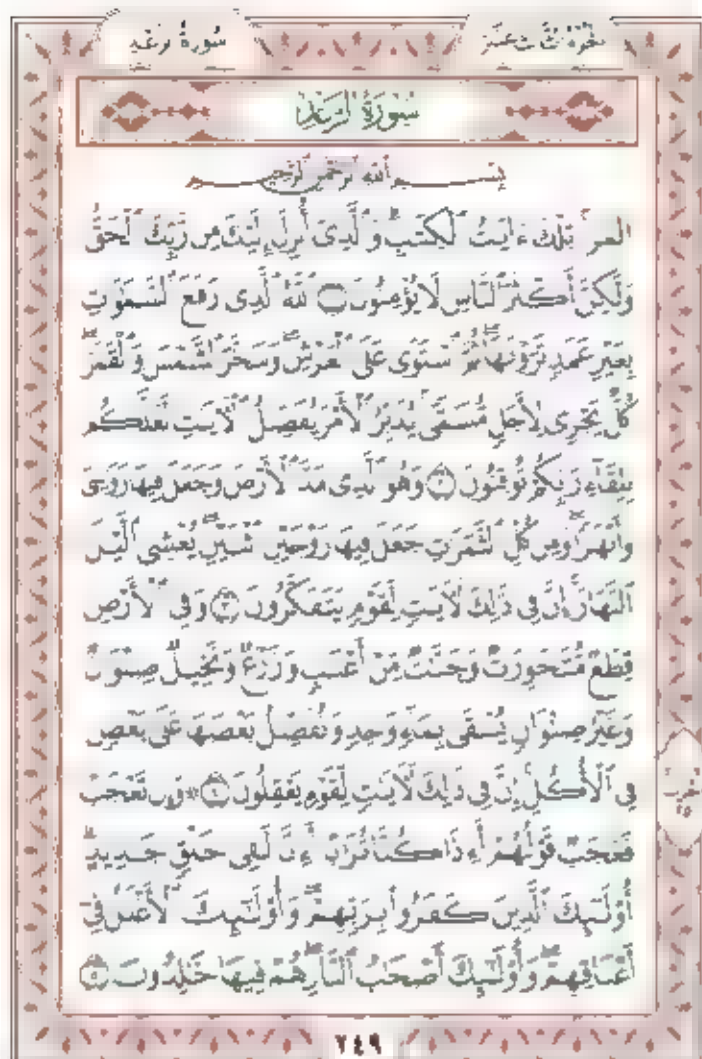 سُورَةُ الرَّعْدِ الجُزْءُ الثَّالِثَ عَشَرَ
سُورَةُ الرَّعْدِ
بِسْمِ ٱللَّهِ ٱلرَّحْمَٰنِ ٱلرَّحِيمِ
الٓمٓر تِلْكَ ءَايَٰتُ ٱلْكِتَٰبِ وَٱلَّذِىٓ أُنزِلَ إِلَيْكَ مِن رَّبِّكَ ٱلْحَقُّ
وَلَٰكِنَّ أَكْثَرَ ٱلنَّاسِ لَا يُؤْمِنُونَ ۝١ ٱللَّهُ ٱلَّذِى رَفَعَ ٱلسَّمَٰوَٰتِ
بِغَيْرِ عَمَدٍ تَرَوْنَهَا ثُمَّ ٱسْتَوَىٰ عَلَى ٱلْعَرْشِ وَسَخَّرَ ٱلشَّمْسَ وَٱلْقَمَرَ
كُلٌّ يَجْرِى لِأَجَلٍ مُّسَمًّى يُدَبِّرُ ٱلْأَمْرَ يُفَصِّلُ ٱلْءَايَٰتِ لَعَلَّكُم
بِلِقَآءِ رَبِّكُمْ تُوقِنُونَ ۝٢ وَهُوَ ٱلَّذِى مَدَّ ٱلْأَرْضَ وَجَعَلَ فِيهَا رَوَٰسِىَ
وَأَنْهَٰرًا وَمِن كُلِّ ٱلثَّمَرَٰتِ جَعَلَ فِيهَا زَوْجَيْنِ ٱثْنَيْنِ يُغْشِى ٱلَّيْلَ
ٱلنَّهَارَ إِنَّ فِى ذَٰلِكَ لَءَايَٰتٍ لِّقَوْمٍ يَتَفَكَّرُونَ ۝٣ وَفِى ٱلْأَرْضِ
قِطَعٌ مُّتَجَٰوِرَٰتٌ وَجَنَّٰتٌ مِّنْ أَعْنَٰبٍ وَزَرْعٌ وَنَخِيلٌ صِنْوَانٌ
وَغَيْرُ صِنْوَانٍ يُسْقَىٰ بِمَآءٍ وَٰحِدٍ وَنُفَضِّلُ بَعْضَهَا عَلَىٰ بَعْضٍ
فِى ٱلْأُكُلِ إِنَّ فِى ذَٰلِكَ لَءَايَٰتٍ لِّقَوْمٍ يَعْقِلُونَ ۝٤ ۞ وَإِن تَعْجَبْ
فَعَجَبٌ قَوْلُهُمْ أَءِذَا كُنَّا تُرَٰبًا أَءِنَّا لَفِى خَلْقٍ جَدِيدٍ
أُو۟لَٰٓئِكَ ٱلَّذِينَ كَفَرُوا۟ بِرَبِّهِمْ وَأُو۟لَٰٓئِكَ ٱلْأَغْلَٰلُ فِىٓ
أَعْنَاقِهِمْ وَأُو۟لَٰٓئِكَ أَصْحَٰبُ ٱلنَّارِ هُمْ فِيهَا خَٰلِدُونَ ۝٥
الحزب
٢٥
٢٤٩